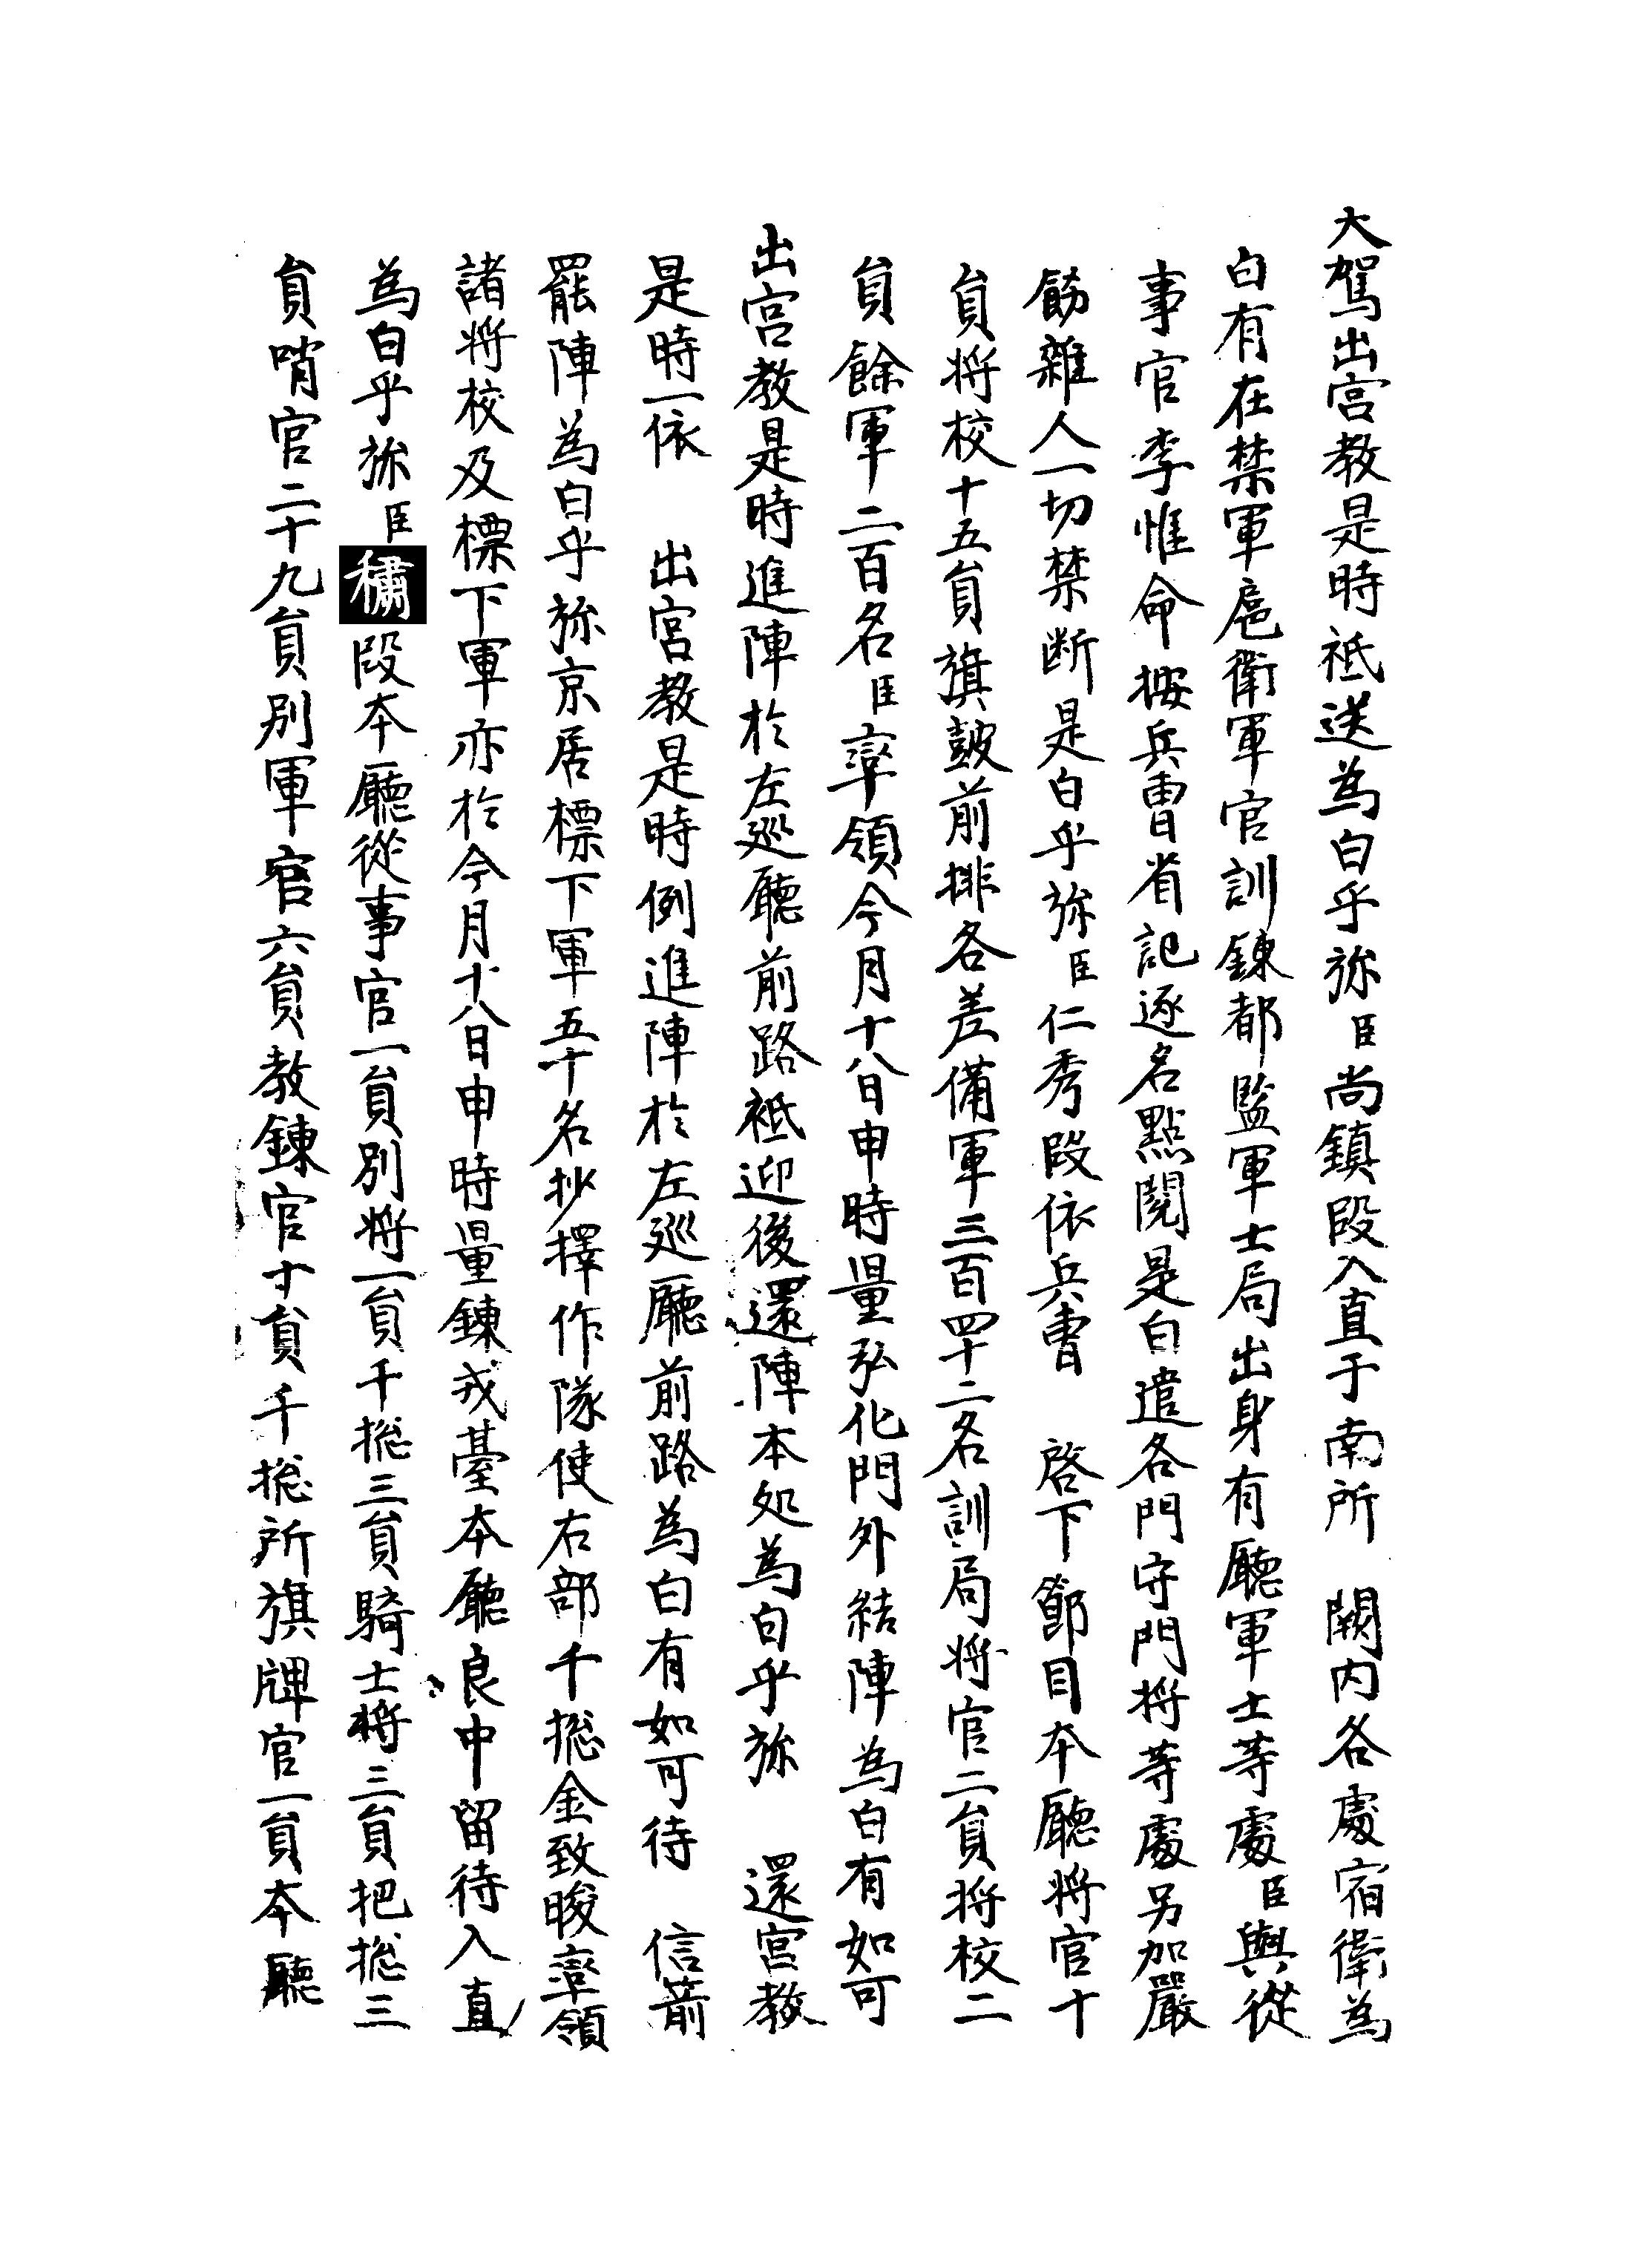 大駕出宮教是時祗送為白乎旀臣尚鎮段入直于南所 闕内各處宿衛為
白有在禁軍扈衛軍官訓鍊都監軍士局出身有廳軍士等處臣與從
事官李惟命按兵曹省記逐名點閱是白遣各門守門將等處另加嚴
飭雜人一切禁断是白乎旀臣仁秀段依兵曹 啓下節目本廳將官十
員將校十五員旗皷前排各差備軍三百四十二名訓局將官二員將校二
員餘軍二百名臣率領今月十八日申時量弘化門外結陣為白有如可
出宮教是時進陣於左巡廳前路祗迎後還陣本処為白乎旀 還宮教
是時一依 出宮教是時例進陣於左巡廳前路為白有如可待 信箭
罷陣為白乎旀京居標下軍五十名抄擇作隊使右部千摠金致晙率領
諸將校及標下軍亦於今月十八日申時量鍊戎臺本廳良中留待入直
為白乎旀臣䊥段本廳從事官一員別將一員千摠三員騎士將三員把摠三
員哨官二十九員別軍官六員教鍊官十員千摠所旗牌官一員本廳